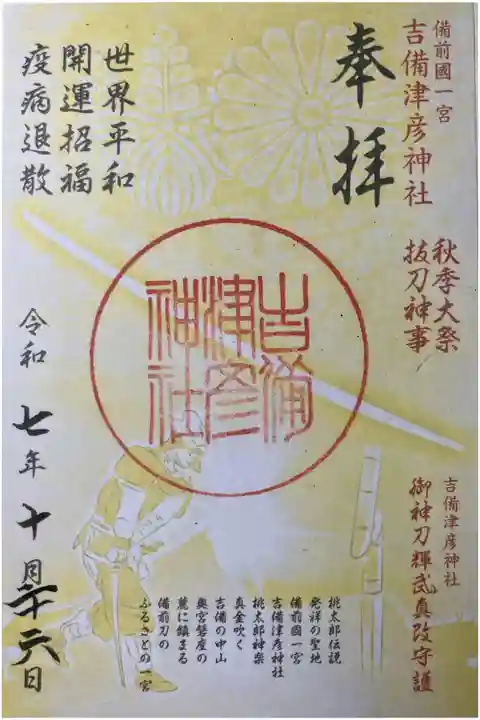 備前國一宮
吉備津彦神社
奉拝
秋季大祭
抜刀神事
世界平和
開運招福
疫病退散
吉備
津彦
神社
令和七年十月二十六日
吉備津彦神社
御神刀輝武真改守護
桃太郎伝説
発祥の聖地
備前國一宮
吉備津彦神社
桃太郎神楽
真金吹く
吉備の中山
奥宮磐座の
麓に鎮まる
備前刀の
ふるさとの一宮